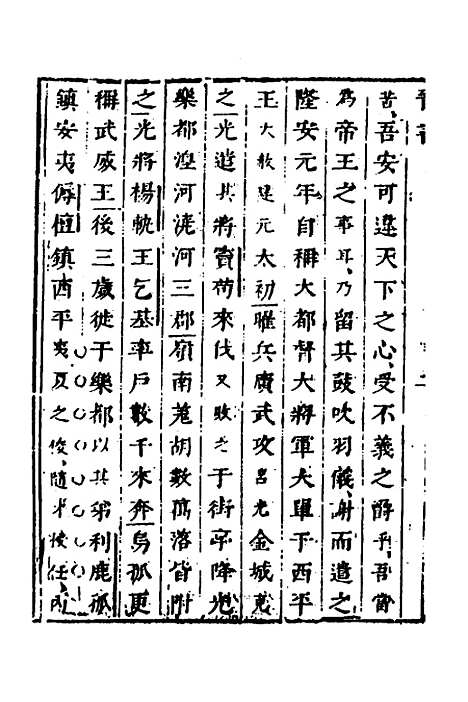 苦吾安可違天下之心受不義之爵乎吾當
爲帝王之事耳乃留其鼓吹羽儀謝而遣之
隆安元年自稱大都督大將軍大單于西平
王大赦建元太初曜兵廣武攻呂光金城克
之光遣其將竇苟來伐又敗之于街亭降光
樂都湟河澆河三郡嶺南羌胡數萬落皆附
之光將楊軌王乞基率戶數千來奔烏孤更
稱武威王後三歲徙于樂都以其弟利鹿孤
鎮安夷傉檀鎮西平夷夏之俊隨才授任內